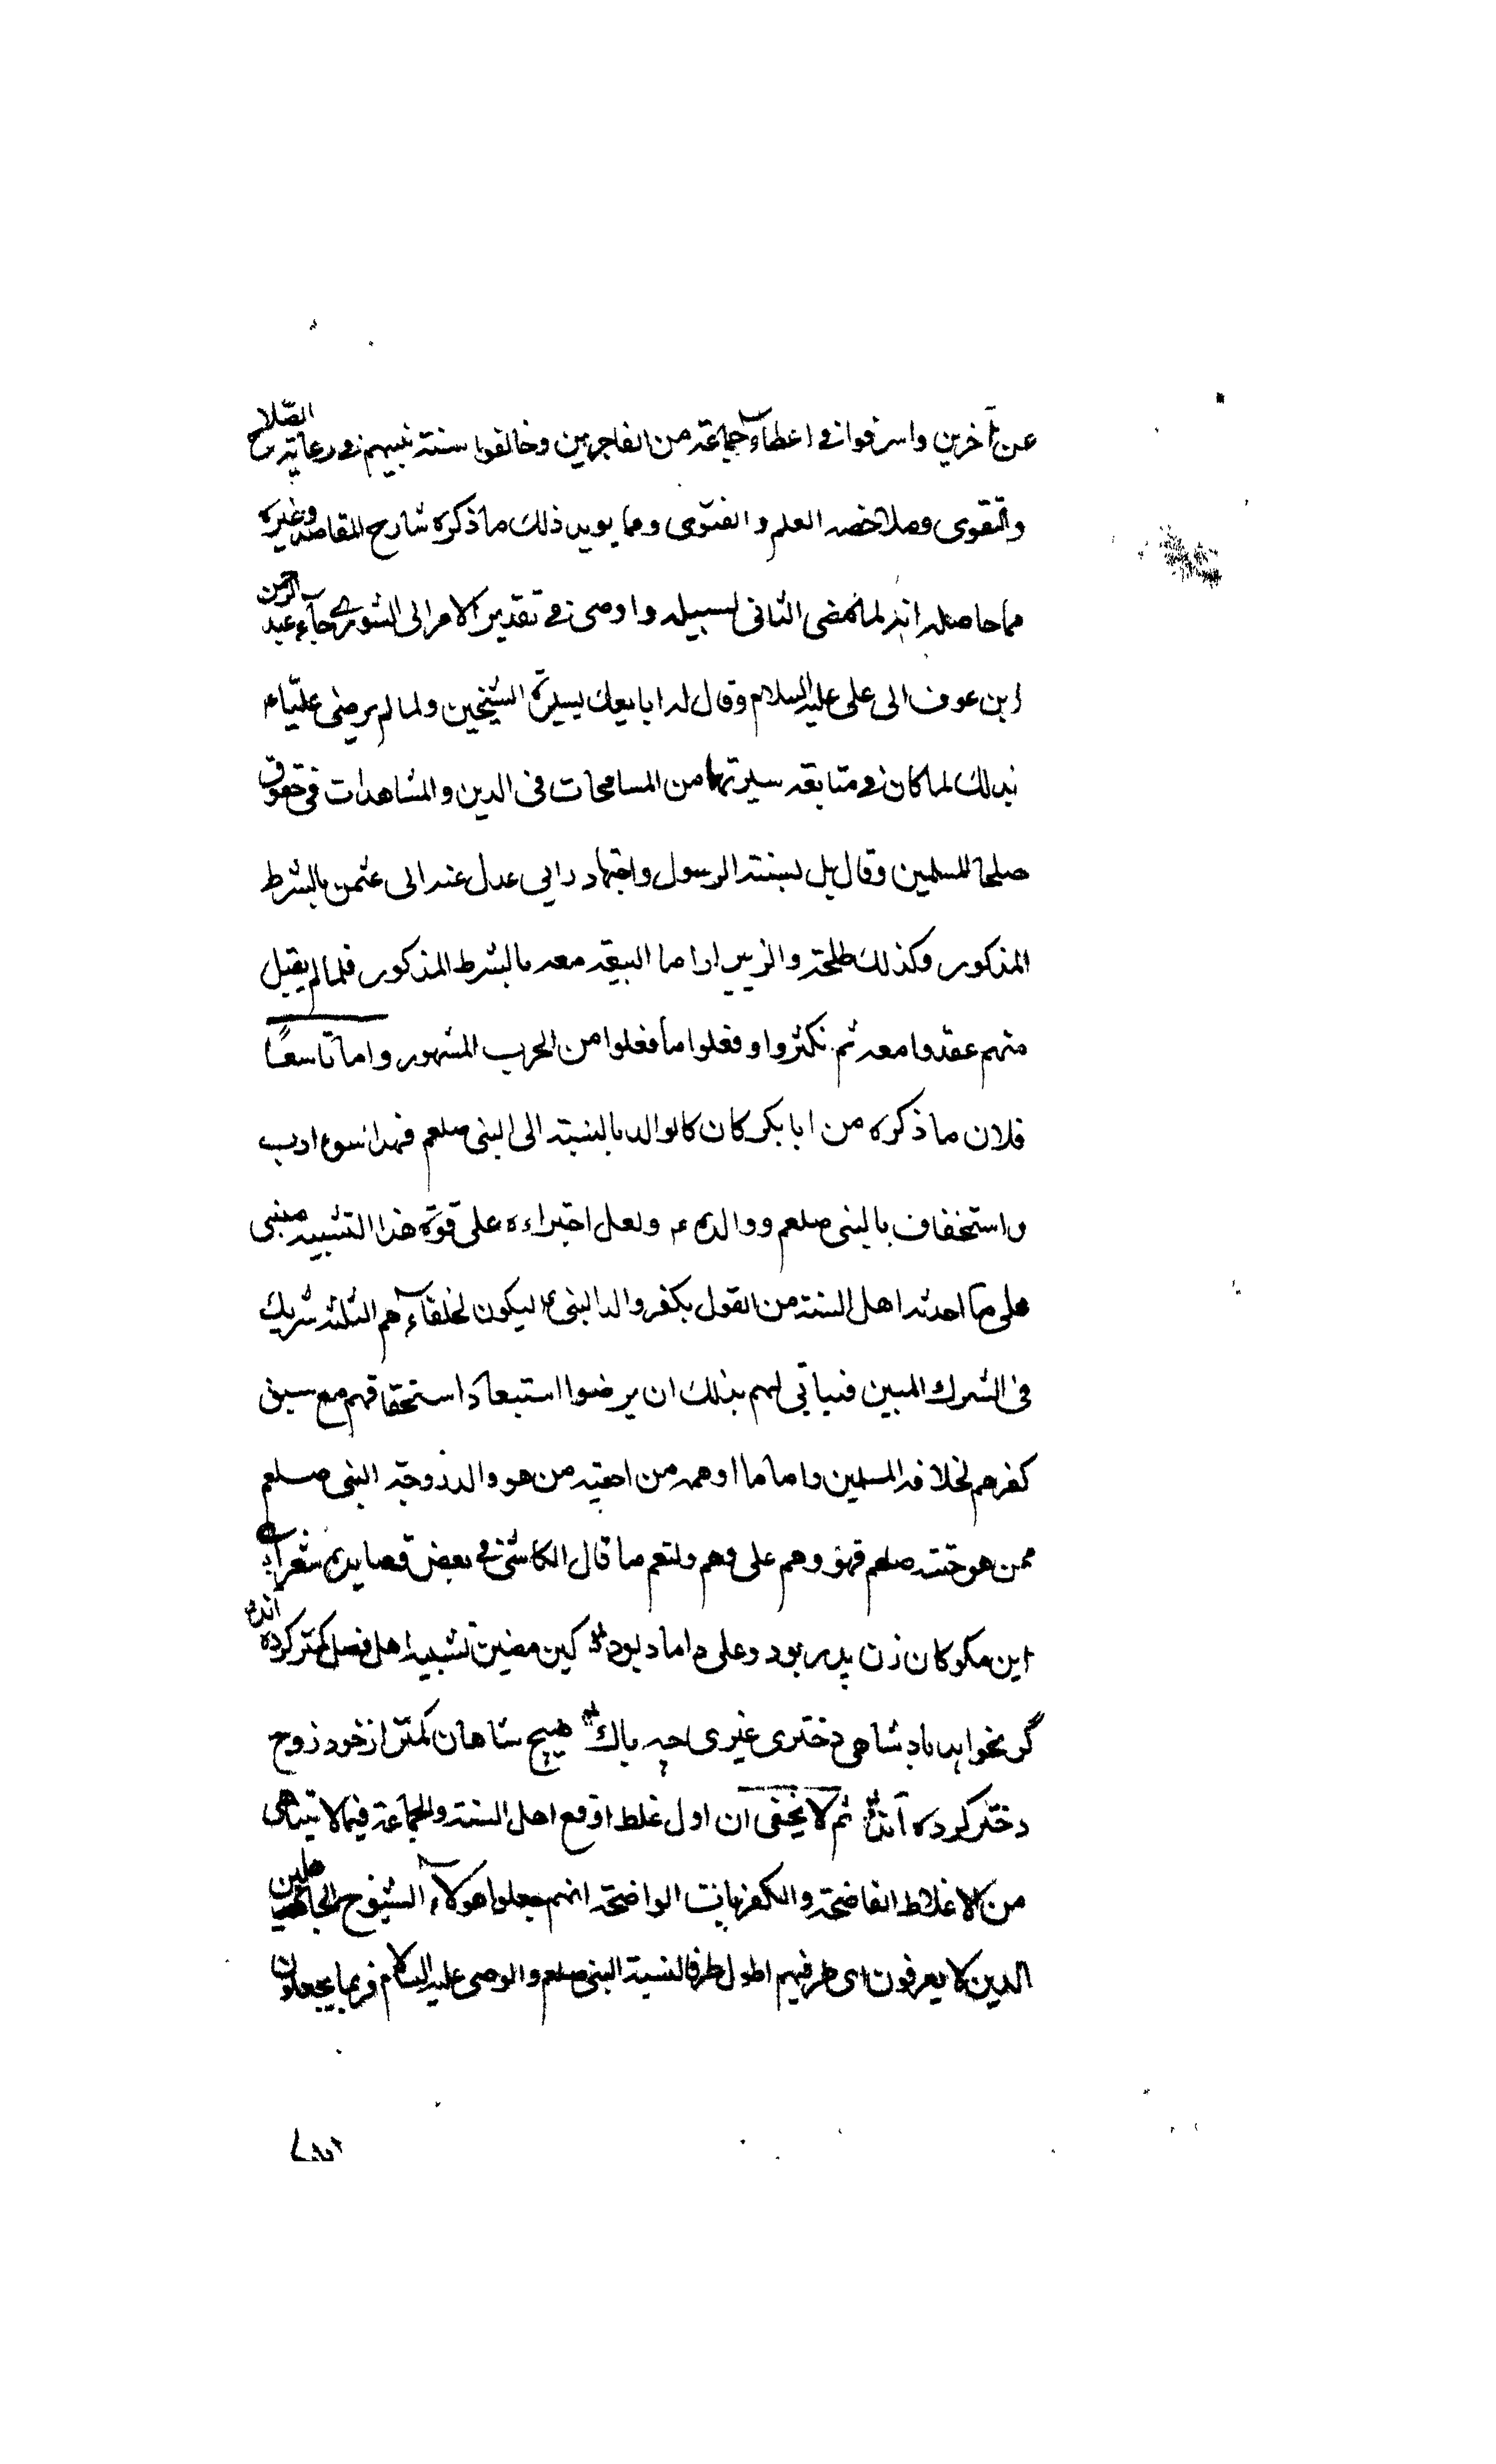 عن آخرين واسرفوا في اعطاء جماعة من الفاجرين وخالفوا سنة نبيهم في رعاية الصّلاح
والتقوى وملاحضه العلم والفتوى ومما يويد ذلك ما ذكره شارح المقاصد وغيره
مما حاصله انه لما مضى الثاني لسبيله واوصى في تقدير الامر الى الشورى جاء عبد الرحمن
ابن عوف الى على عليه السلام وقال له ابايعك بسيرة الشيخين ولما لم يرضى عليّ ع
بذلك لما كان في متابعة سيرتهما من المسامحات في الدين والمشاهدات في حقوق
صلحا المسلمين وقال بل بسنة الرسول واجتهاد رايي عدل عنه الى عثمن بالشرط
المذكور وكذلك طلحة والزبير اراما البيعة معه بالشرط المذكور فلما لم يقبل
منهم عقدوا معه ثم نكثوا وفعلوا ما فعلوا من الحرب المشهور واما تاسعًا
فلان ما ذكره من ابا بكر كان كالوالد بالنسبة الى النبي صلعم فهذا سوء ادب
واستخفاف بالنبي صلعم ووالده ع ولعل اجتراءه على قوة هذا التشبيه مبني
على ما احدثه اهل السنة من القول بكفر والد النبي ع ليكون لخلفاء هم الثلثة شريك
في الشرك المبين فيأتي لهم بذلك ان يرضوا استبعاد استحقاقهم مع سبق
كفرهم لخلافة المسلمين واما ما اوهمه من احقيه من هو والد زوجة النبي صلعم
ممن هو ختنه صلعم فهو وهم على وهم ولنعم ما قال الكاشي في بعض قصايده شعرا
اين مكو كان زن پدر بود وعلى داماد بود كين مضين تشبيه اهل فضل كمتر كرده اند
گر بخواهد پادشاهى دخترى غيرى چه باك هيچ شاهان كمتر از خود زوج
دختر كرده اند ثم لا يخفى ان اول غلط اوقع اهل السنة والجماعة فيما لا يتناهى
من الاغلاط الفاضحة والكفريات الواضحة انهم جعلوا هولاء الشيوخ الجاهلين
الذين لا يعرفون اى طرفيهم اطول طرفا لنسبة النبي صلعم والوصى عليه السلام فربما يجعلون